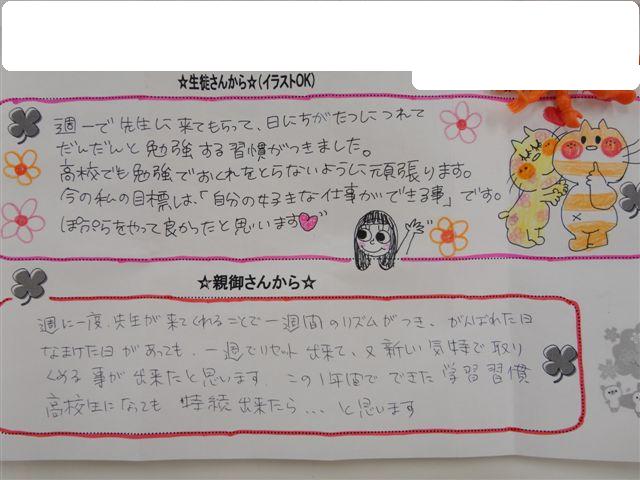 ☆生徒さんから☆(イラストOK)
週一で先生に来てもらって、日にちがたつにつれて
だんだんと勉強する習慣がつきました。
高校でも勉強でおくれをとらないように頑張ります。
今の私の目標は、「自分の好きな仕事ができる事」です。
ぽぷらをやって良かったと思います
☆親御さんから☆
週に一度、先生が来てくれることで一週間のリズムがつき、がんばれた日
なまけた日があっても、一週でリセット出来て、又新しい気持で取り
くめる事が出来たと思います。この1年間でできた学習習慣
高校生になっても持続出来たら…と思います